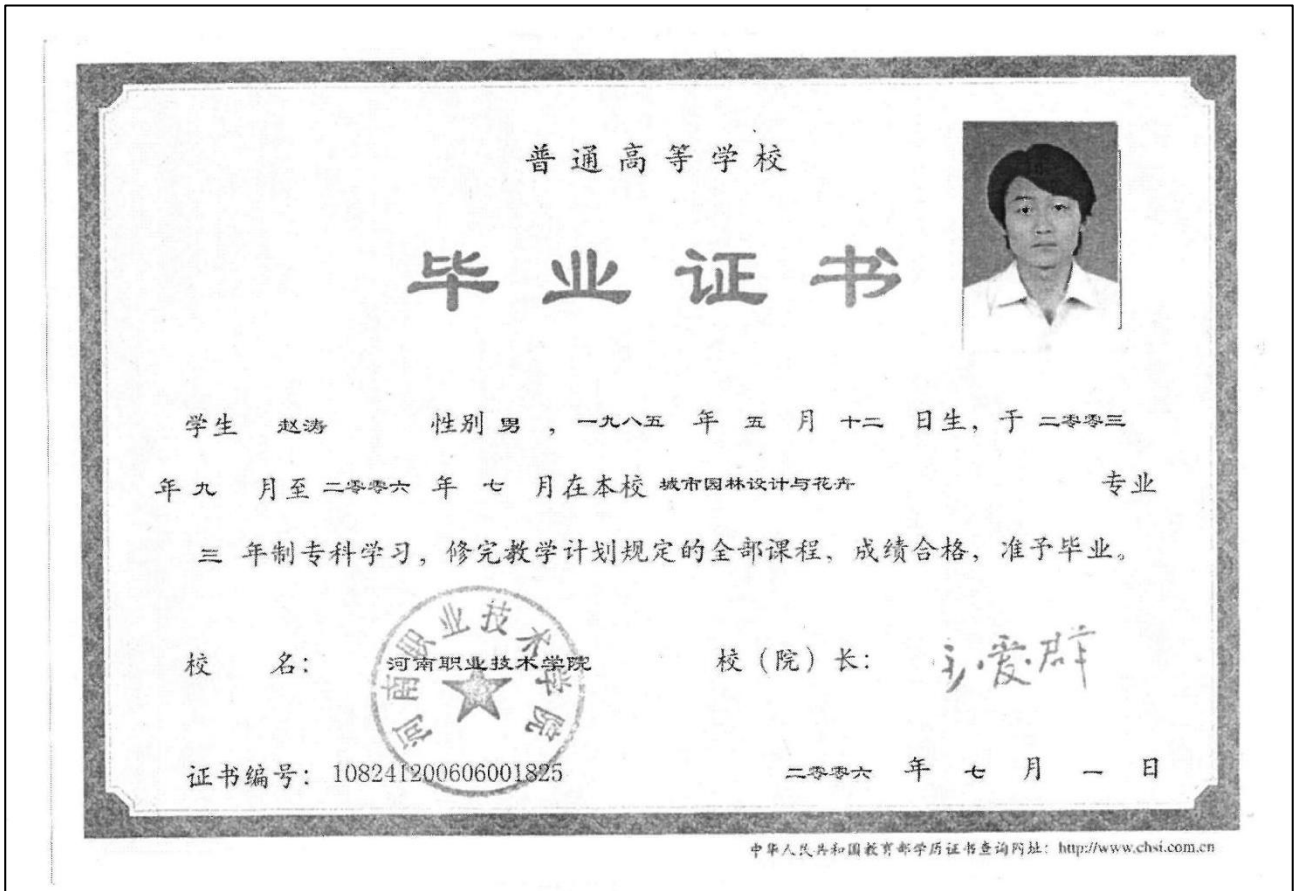 普通高等学校
毕业证书
学生 赵涛 性别 男 , 一九八五 年 五 月 十二 日生, 于 二零零三
年 九 月至 二零零六 年 七 月在本校 城市园林设计与花卉 专业
三 年制专科学习, 修完教学计划规定的全部课程, 成绩合格, 准予毕业。
河南职业技术学院
校 名: 河南职业技术学院 校(院)长: 爱群
证书编号: 108241200606001825 二零零六 年 七 月 一 日
中华人民共和国教育部学历证书查询网址: http://www.chsi.com.cn